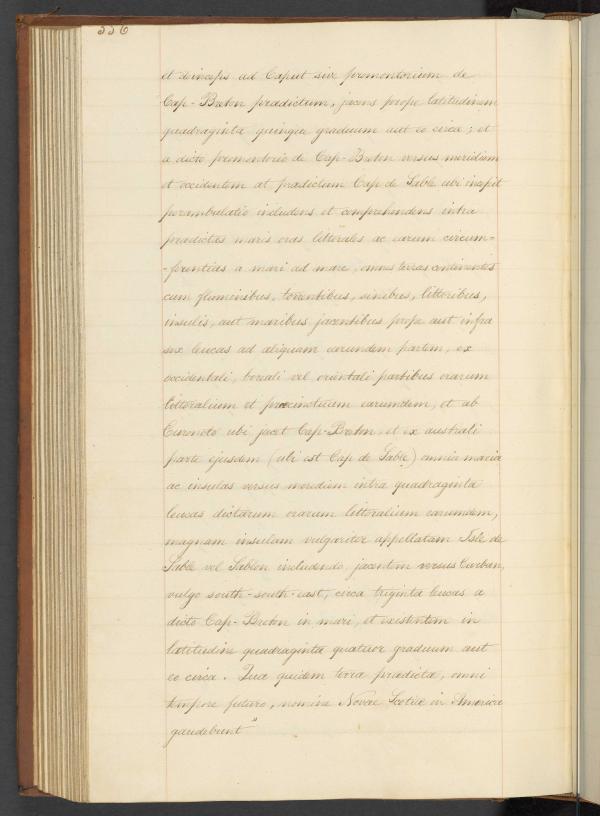 336
et deinceps ad Caput sive promontorium de
Cap-Breton praedictum, jacens prope latitudinem
quadraginta quinque graduum aut eo circa; et
a dicto promontorio de Cap-Breton versus meridiem
et occidentem at praedictum Cap de Sable ubi incepit
perambulatio includens et comprehendens intra
praedictas maris oras littorales ac earum circum=
-ferentias a mari ad mare, omnes terras continentes
cum fluminibus, torrentibus, sinibus, littoribus,
insulis, aut maribus jacentibus prope aut infra
sex leucas ad aliquam earundem partem, ex
occidentali, boreali vel orientali partibus orarum
littoralium et praecinctuum earumdem, et ab
Euronoto ubi jacet Cap-Breton et ex australi
parte ejusdem (ubi est Cap de Sable) omnia maria
ac insulas versus meridiem intra quadraginta
leucas dictarum orarum littoralium earumdem,
magnam insulam vulgariter appellatam Isle de
Sable vel Sablon includendo, jacentem versus
vulgo south-south-east, circa triginta leucas a
dicto Cap-Breton in mari, et existentem in
latitudine quadraginta quatuor graduum aut
eo circa. Quae quidem terra praedicta, omni
tempore futuro, nomine Novae Scotiae in America
gaudebunt"